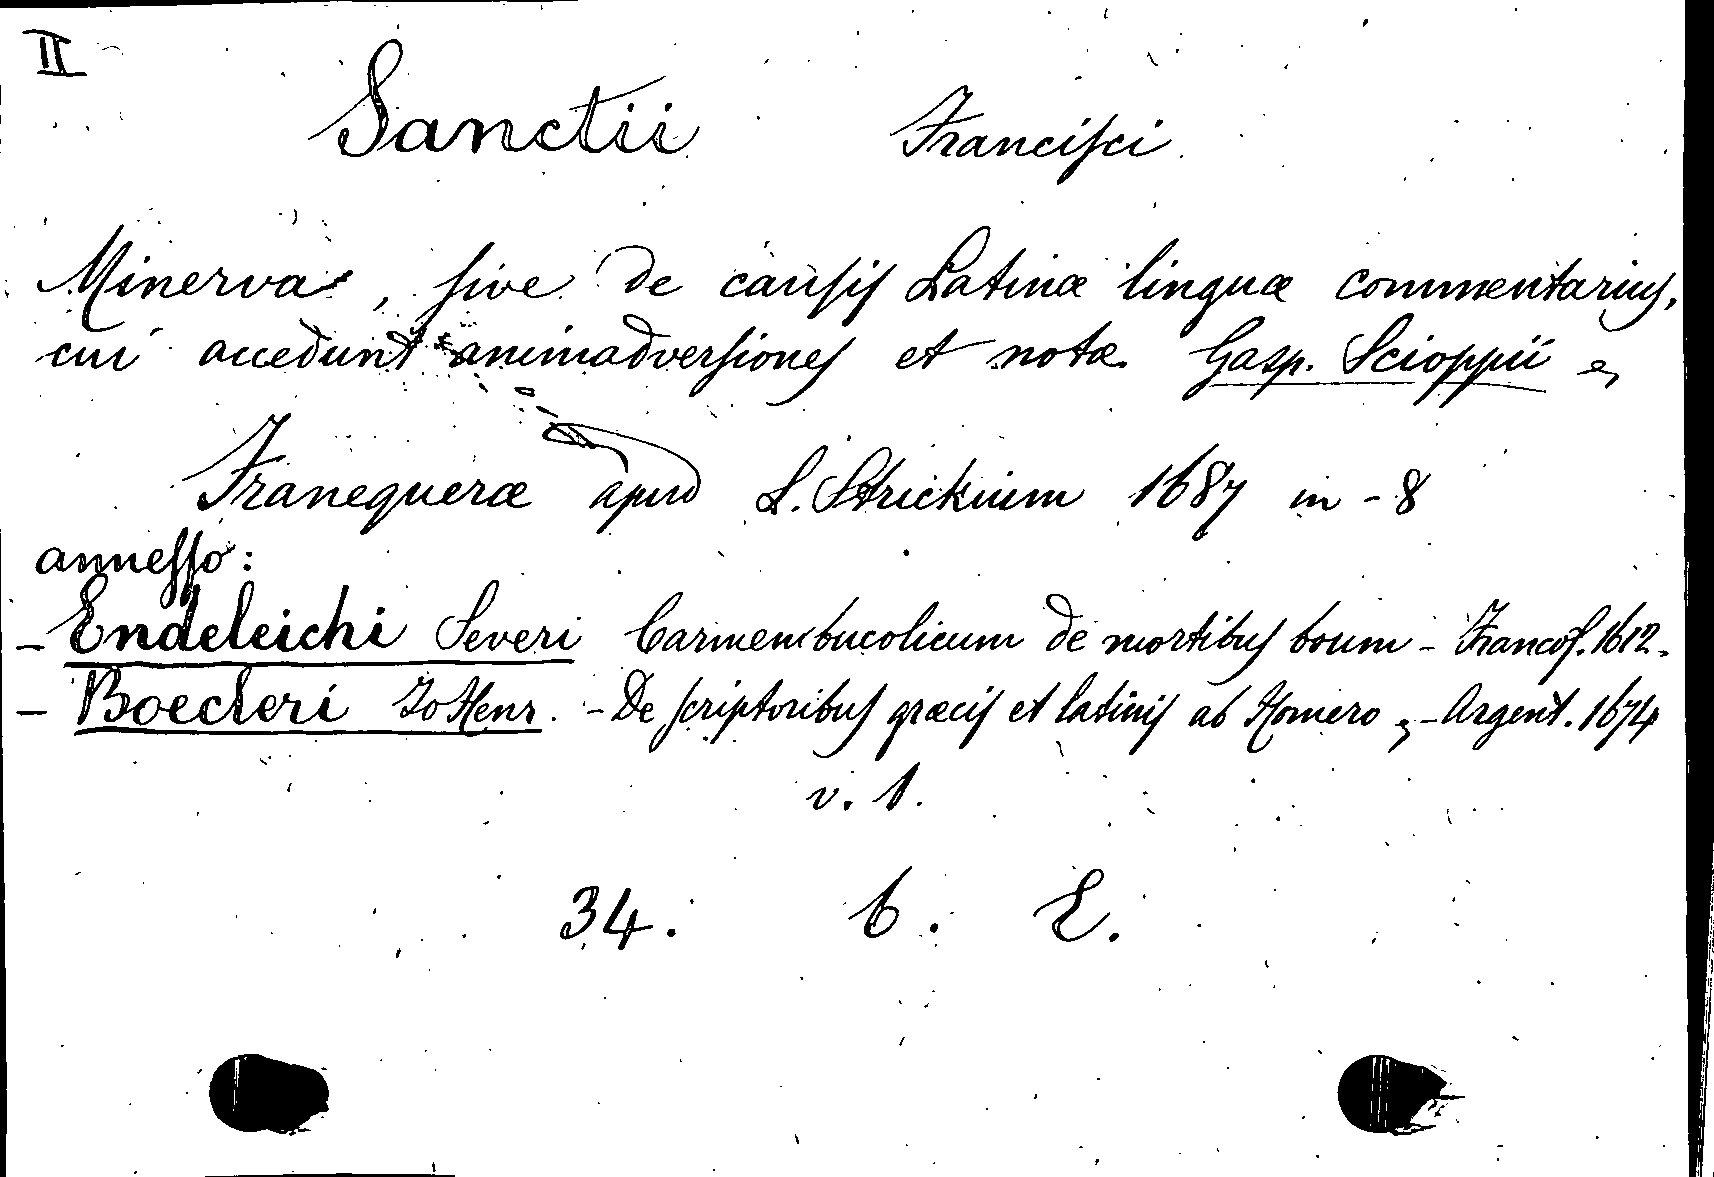 II
Sanctii Franciſci
Minerva, ſive de cauſiſ Latinæ linguæ commentariuſ,
cui accedunt animadverſioneſ et notæ Gasp. Scioppii &
Franequeræ apud L. Strickium 1687 in-8
anneſſo:
- Endeleichi Severi Carmen bucolicum de mortibuſ boum - Francof. 1612.
- Boecleri Jo Henr. - De ſcriptoribuſ græciſ et latiniſ ab Homero & - Argent. 1674
v. 1.
34. 6. E.